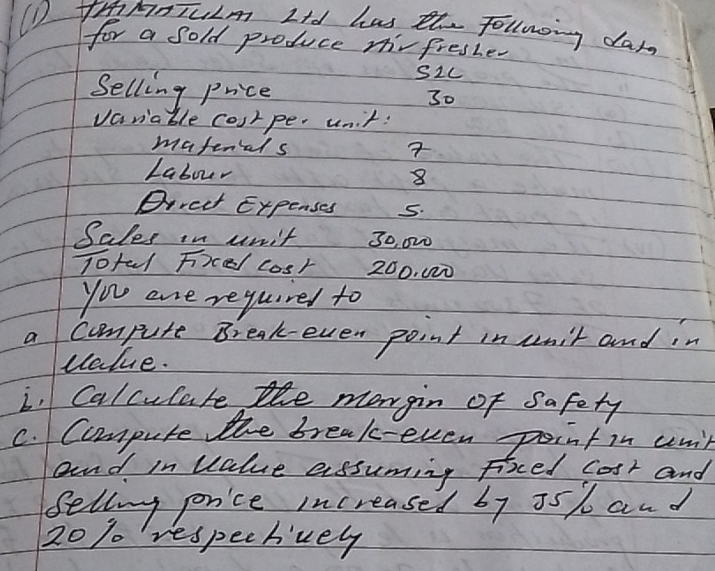 (1) THIMATULM Ltd has the Following data
for a sold produce Air fresher
S2L
Selling price 30
Variable cost per unit:
materials 7
Labour 8
Direct Expenses 5.
Sales in unit 30,000
Total Fixed cost 200,000
You are required to
a Compute Break-even point in unit and in
Value.
i. Calculate the margin of safety
c. Compute the break-even point in unit
and in value assuming fixed cost and
selling price increased by 35% and
20% respectively